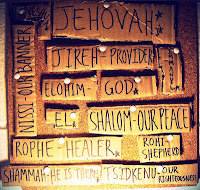 JEHOVAH
NISSI-OUR BANNER
JIREH-PROVIDER
ELOHIM-GOD
EL
SHALOM-OUR PEACE
ROPHE-HEALER
ROHI-SHEPHERD
SHAMMAH-HE IS THERE
TSIDKENU-OUR RIGHTEOUSNESS